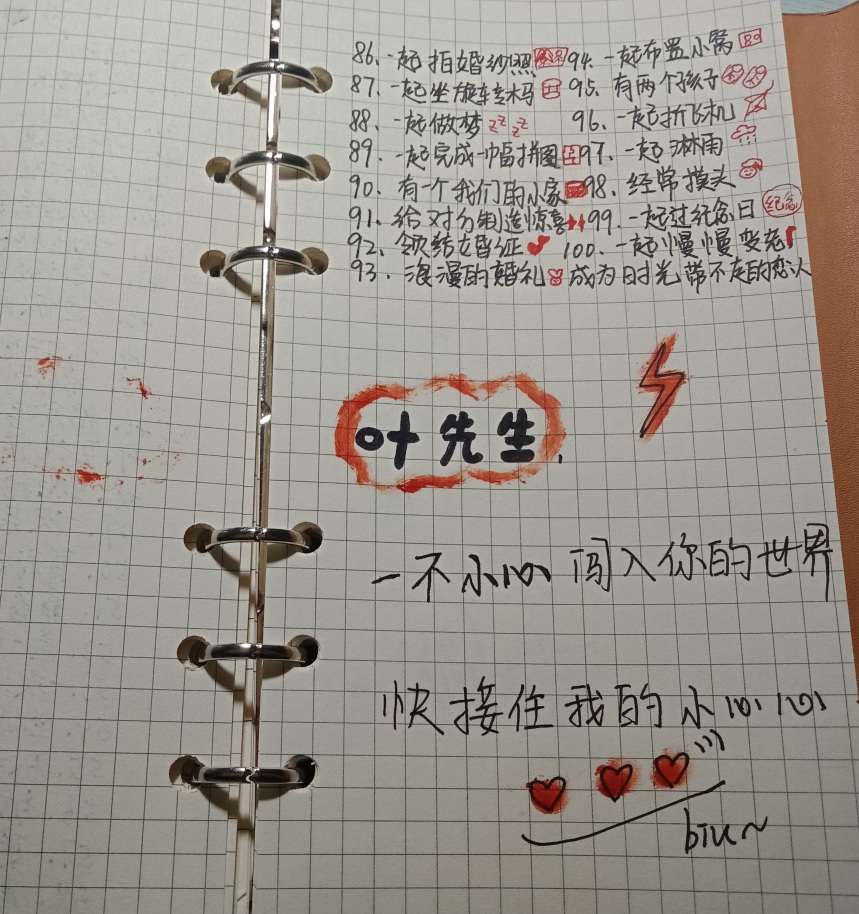 86、一起拍婚纱照
87、一起坐旋转木马
88、一起做梦 zz zz
89、一起完成一幅拼图
90、有一个我们的小家
91、给对方制造惊喜
92、领结婚证
93、浪漫的婚礼
94、一起布置小窝
95、有两个孩子
96、一起折飞机
97、一起淋雨
98、经常摸头
99、一起过纪念日 纪念
100、一起慢慢变老
成为时光带不走的恋人
叶先生.
一不小心闯入你的世界
快接住我的小心心
biu~